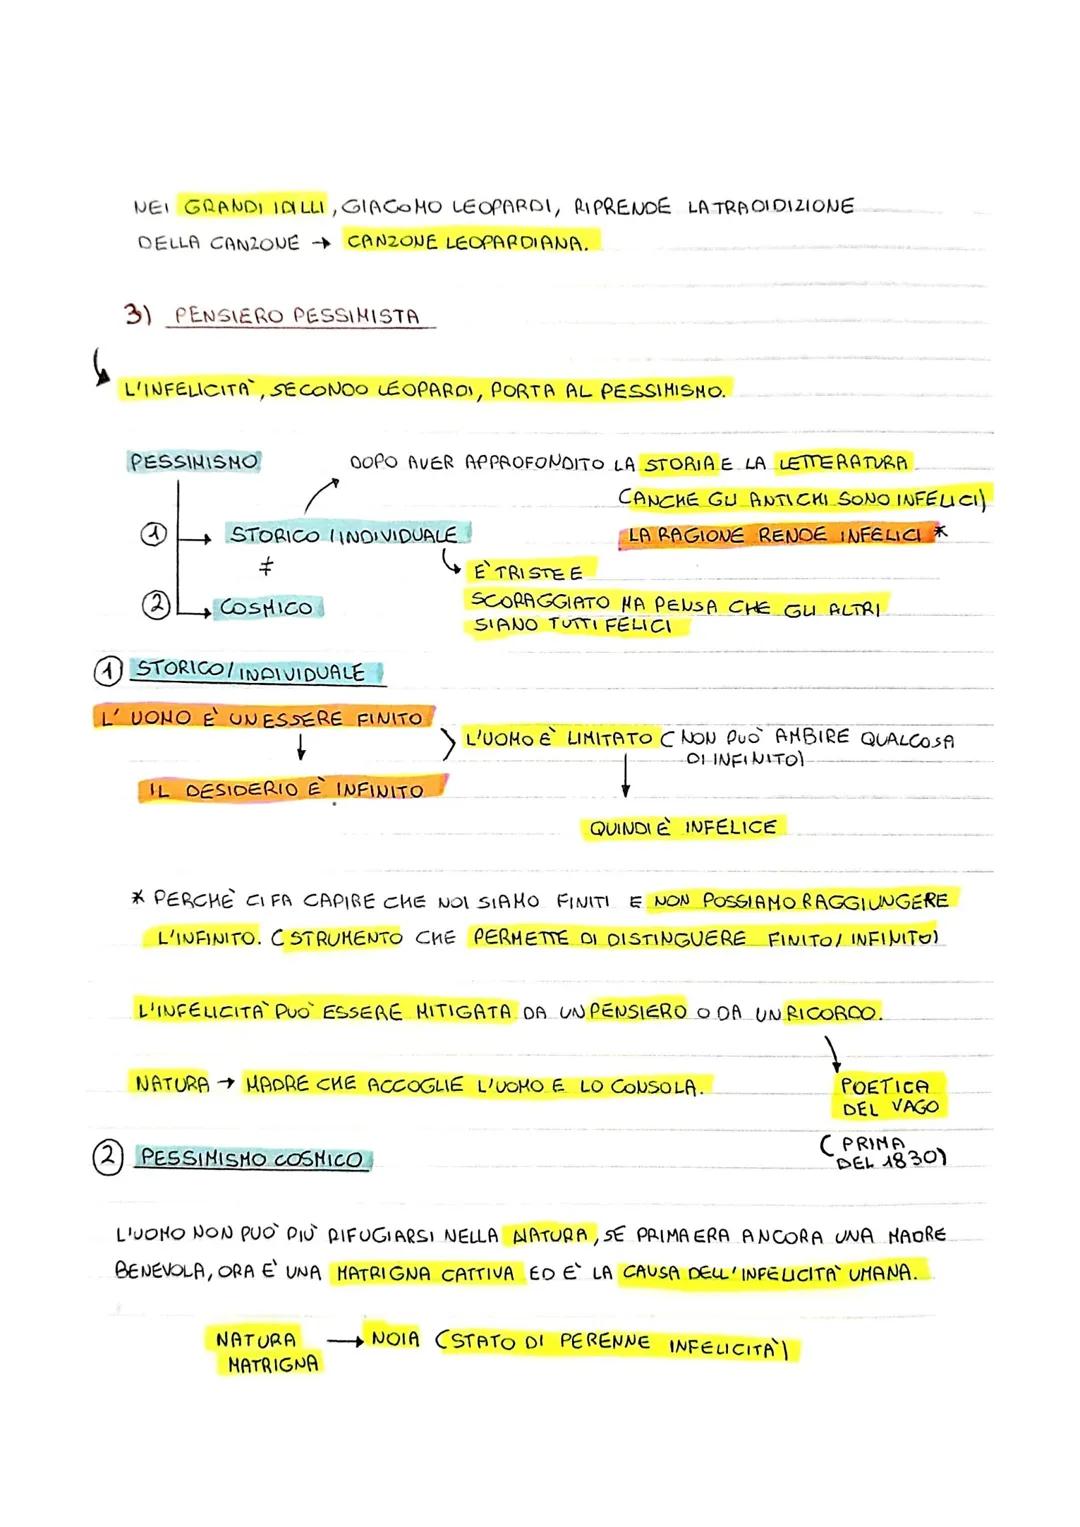 NEI GRANDI IDILLI, GIACOMO LEOPARDI, RIPRENDE LA TRADIDIZIONE
DELLA CANZONE → CANZONE LEOPARDIANA.
3) PENSIERO PESSIMISTA
L'INFELICITÀ, SECONDO LEOPARDI, PORTA AL PESSIMISMO.
PESSIMISMO
DOPO AVER APPROFONDITO LA STORIA E LA LETTERATURA
(ANCHE GLI ANTICHI SONO INFELICI)
① → STORICO / INDIVIDUALE
LA RAGIONE RENDE INFELICI *
≠
È TRISTE E
② → COSMICO
SCORAGGIATO MA PENSA CHE GLI ALTRI
SIANO TUTTI FELICI
① STORICO/INDIVIDUALE
L'UOMO È UN ESSERE FINITO
L'UOMO È LIMITATO (NON PUÒ AMBIRE QUALCOSA
DI INFINITO)
IL DESIDERIO È INFINITO
QUINDI È INFELICE
* PERCHÈ CI FA CAPIRE CHE NOI SIAMO FINITI E NON POSSIAMO RAGGIUNGERE
L'INFINITO. (STRUMENTO CHE PERMETTE DI DISTINGUERE FINITO/INFINITO)
L'INFELICITÀ PUÒ ESSERE MITIGATA DA UN PENSIERO O DA UN RICORDO.
NATURA → MADRE CHE ACCOGLIE L'UOMO E LO CONSOLA.
POETICA
DEL VAGO
(PRIMA
DEL 1830)
② PESSIMISMO COSMICO
L'UOMO NON PUÒ PIÙ RIFUGIARSI NELLA NATURA, SE PRIMA ERA ANCORA UNA MADRE
BENEVOLA, ORA È UNA MATRIGNA CATTIVA ED È LA CAUSA DELL'INFELICITÀ UMANA.
NATURA → NOIA (STATO DI PERENNE INFELICITÀ)
MATRIGNA